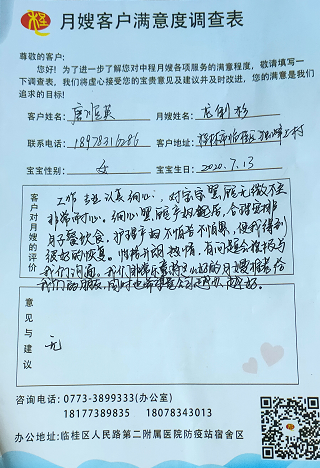 月嫂客户满意度调查表
尊敬的客户:
您好! 为了进一步了解您对中程月嫂各项服务的满意程度, 敬请填写一
下调查表, 我们将虚心接受您的宝贵意见及建议并及时改进, 您的满意是我们
追求的目标!
客户姓名: 月嫂姓名: 龙利杉
联系电话: 18978316286 客户地址:
宝宝性别: 女 宝宝生日: 2020.7.13
客户对月嫂的评价
工作专业认真细心, 对宝宝照顾无微不至
非常耐心。细心照顾产妇起居, 合理安排
月子餐饮食。护理产妇不怕苦不怕累, 使我得到
很好的恢复。性格开朗热情, 有问题会积极与
我们沟通。我们非常愿意将这么好的月嫂推荐给
我们的朋友, 同时也希望贵公司越办越好。
意见与建议
无
咨询电话: 0773-3899333(办公室)
18177389835 18078343013
办公地址: 临桂区人民路第二附属医院防疫站宿舍区